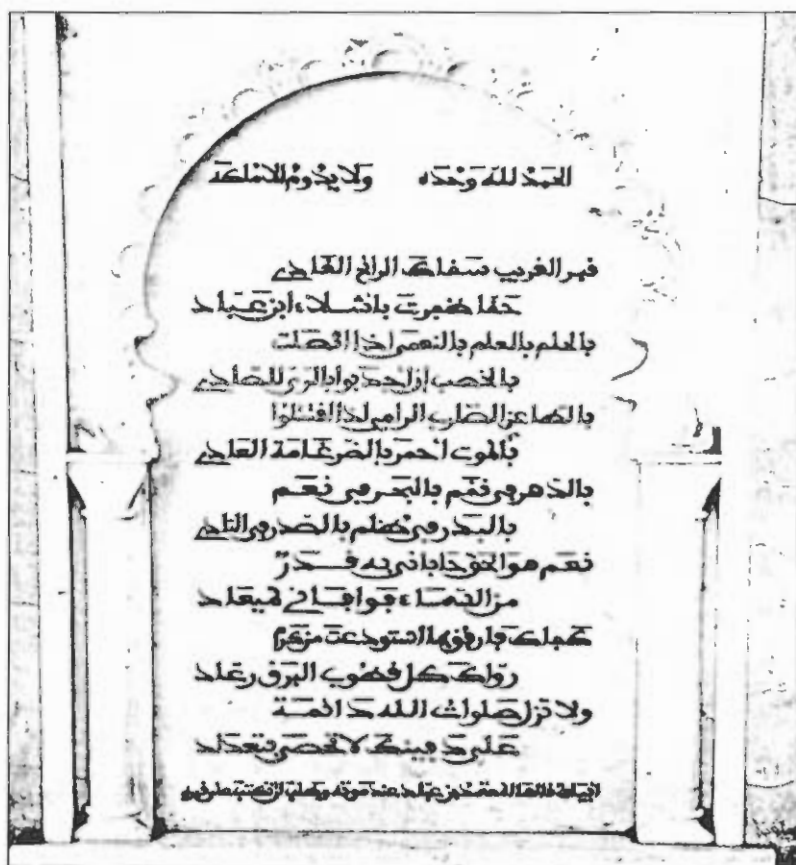 الحمد لله وحده ولا يدوم الا ملكه
قبر الغريب سقاك الرائح الغادي
حقا ظفرت باشلاء ابن عباد
بالحلم بالعلم بالنعمى اذا اتصلت
بالخصب ان اجدبوا بالري للصادي
بالطاعن الضارب الرامي اذا اقتتلوا
بالموت احمر بالضرغامة العادي
بالدهر في نقم بالبحر في نعم
بالبدر في ظلم بالصدر في النادي
نعم هو الحق حاباني به قدر
من السماء فوافاني لميعاد
كفاك فارفق بما استودعت من كرم
رواك كل قطوب البرق رعاد
ولا تزل صلوات الله دائمة
على دفينك لا تحصى بتعداد
المعتمد بن عباد عند موته وطلب ان تكتب على قبره